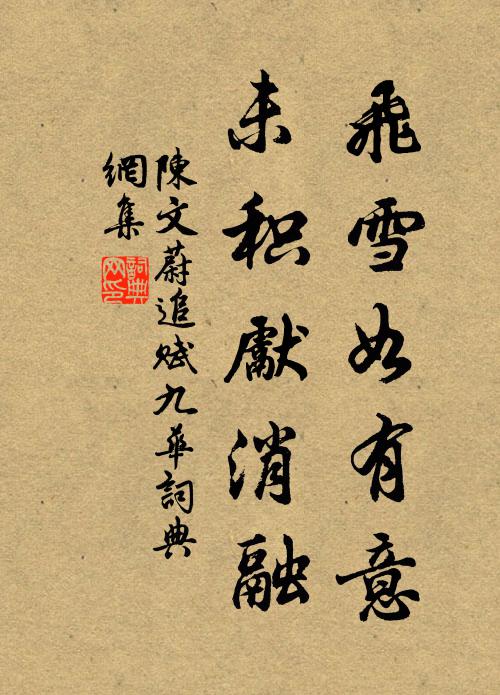 飛雪如有意
未积獻消融
陳文蔚追賦九華詞典
網集
詞典
网印